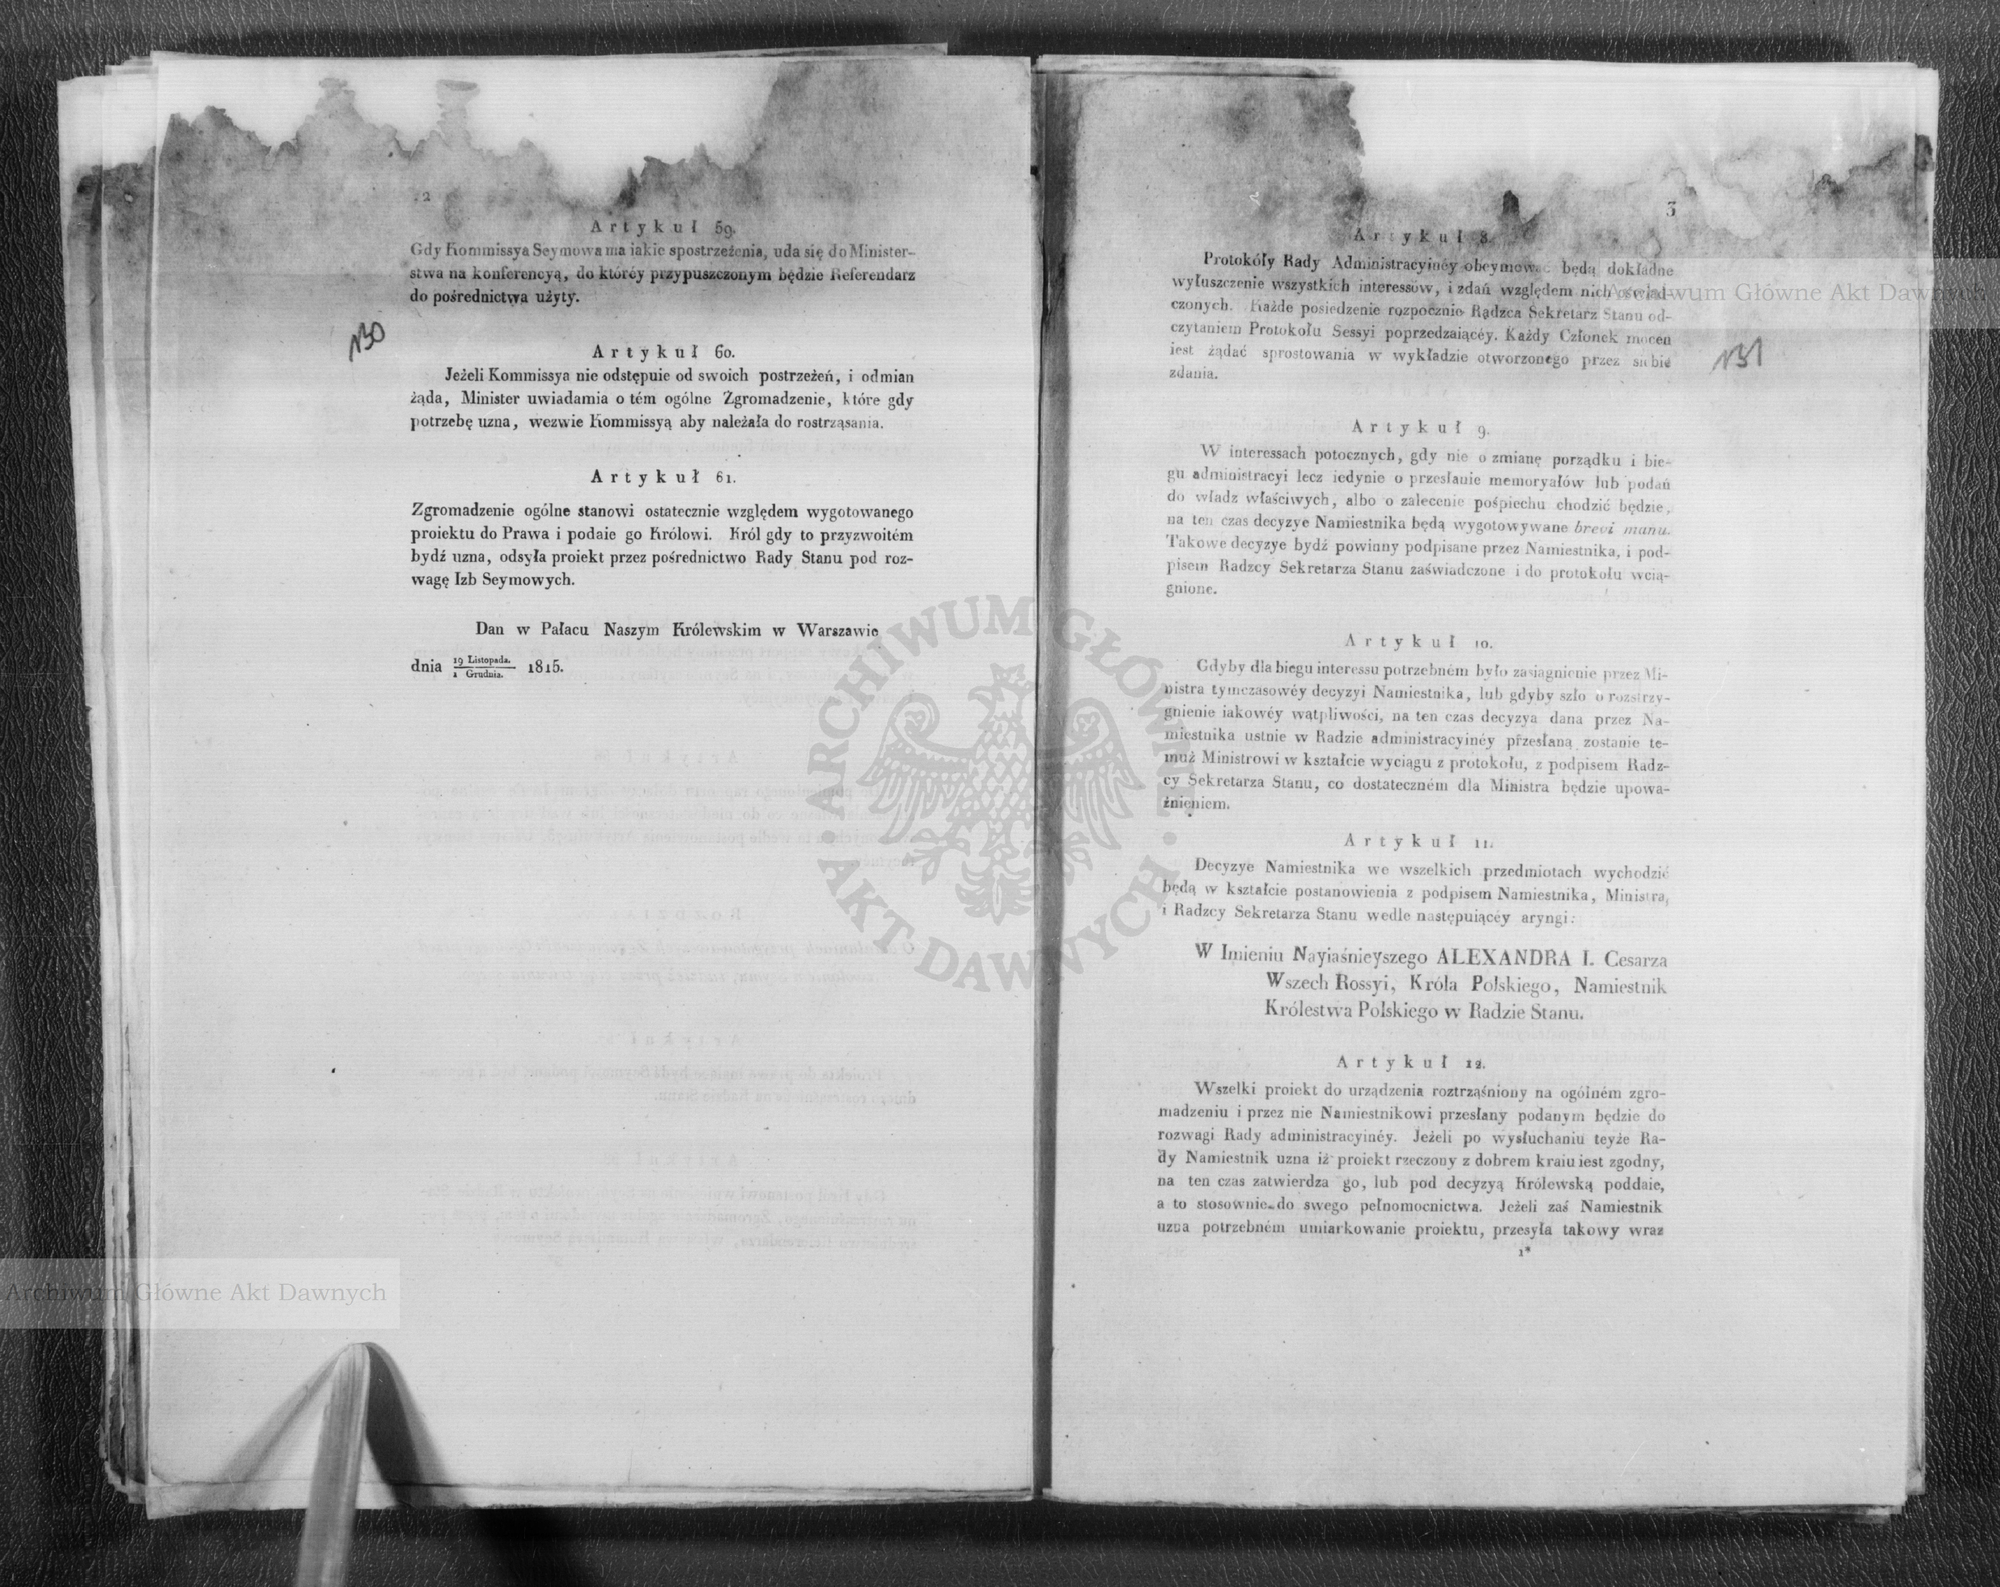 2
Artykuł 59.
Gdy Kommissya Seymowa ma iakie spostrzeżenia, uda się do Minister-
stwa na konferencyą, do któréy przypuszczonym będzie Referendarz
do pośrednictwa użyty.
130
Artykuł 60.
Jeżeli Kommissya nie odstępuie od swoich postrzeżeń, i odmian
żąda, Minister uwiadamia o tém ogólne Zgromadzenie, które gdy
potrzebę uzna, wezwie Kommissyą aby należała do rostrząsania.
Artykuł 61.
Zgromadzenie ogólne stanowi ostatecznie względem wygotowanego
proiektu do Prawa i podaie go Królowi. Król gdy to przyzwoitém
bydź uzna, odsyła proiekt przez pośrednictwo Rady Stanu pod roz-
wagę Izb Seymowych.
Dan w Pałacu Naszym Królewskim w Warszawie
dnia 19 Listopada. / 1 Grudnia. 1815.
3
Artykuł 8.
Protokóły Rady Administracyinéy obeymować będą dokładne
wyłuszczenie wszystkich interessów, i zdań względem nich oświad-
czonych. Każde posiedzenie rozpocznie Radzca Sekretarz Stanu od-
czytaniem Protokołu Sessyi poprzedzaiącéy. Każdy Członek mocen
iest żądać sprostowania w wykładzie otworzonego przez siebie
zdania.
131
Artykuł 9.
W interessach potocznych, gdy nie o zmianę porządku i bie-
gu administracyi lecz iedynie o przesłanie memoryałów lub podań
do władz właściwych, albo o zalecenie pośpiechu chodzić będzie,
na ten czas decyzye Namiestnika będą wygotowywane brevi manu.
Takowe decyzye bydź powinny podpisane przez Namiestnika, i pod-
pisem Radzcy Sekretarza Stanu zaświadczone i do protokołu wcią-
gnione.
Artykuł 10.
Gdyby dla biegu interessu potrzebném było zasiągnienie przez Mi-
nistra tymczasowéy decyzyi Namiestnika, lub gdyby szło o rozstrzy-
gnienie iakowéy wątpliwości, na ten czas decyzya dana przez Na-
miestnika ustnie w Radzie administracyinéy przesłaną zostanie te-
muż Ministrowi w kształcie wyciągu z protokołu, z podpisem Radz-
cy Sekretarza Stanu, co dostateczném dla Ministra będzie upowa-
żnieniem.
Artykuł 11.
Decyzye Namiestnika we wszelkich przedmiotach wychodzić
będą w kształcie postanowienia z podpisem Namiestnika, Ministra,
i Radzcy Sekretarza Stanu wedle następuiącéy aryngi:
W Imieniu Nayiaśnieyszego ALEXANDRA I. Cesarza
Wszech Rossyi, Króla Polskiego, Namiestnik
Królestwa Polskiego w Radzie Stanu.
Artykuł 12.
Wszelki proiekt do urządzenia roztrząśniony na ogólném zgro-
madzeniu i przez nie Namiestnikowi przesłany podanym będzie do
rozwagi Rady administracyinéy. Jeżeli po wysłuchaniu teyże Ra-
dy Namiestnik uzna iż proiekt rzeczony z dobrem kraiu iest zgodny,
na ten czas zatwierdza go, lub pod decyzyą Królewską poddaie,
a to stosownie do swego pełnomocnictwa. Jeżeli zaś Namiestnik
uzna potrzebném umiarkowanie proiektu, przesyła takowy wraz
1*
Archiwum Główne Akt Dawnych
Archiwum Główne Akt Dawnych
ARCHIWUM GŁÓWNE · AKT DAWNYCH ·